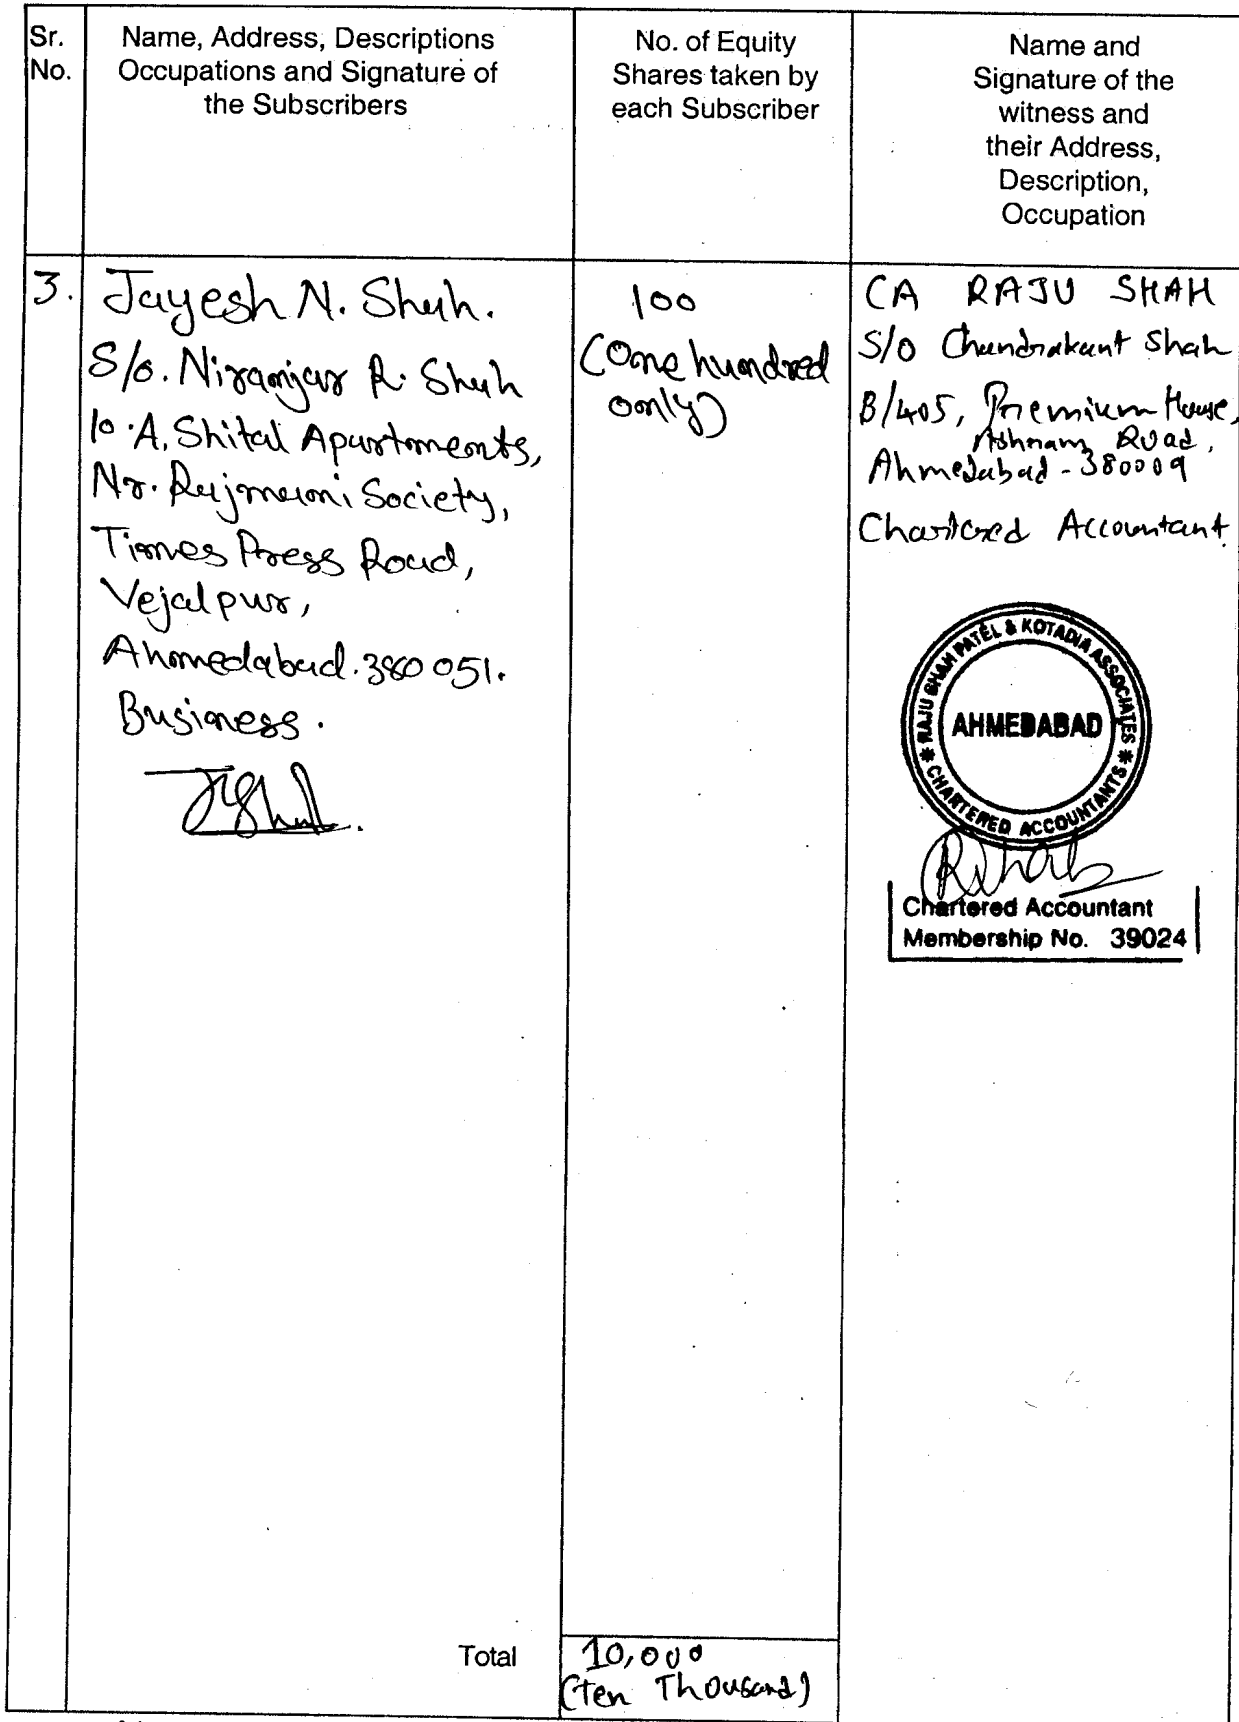 Sr.
No.
Name, Address, Descriptions
Occupations and Signature of
the Subscribers
No. of Equity
Shares taken by
each Subscriber
Name and
Signature of the
witness and
their Address,
Description,
Occupation
3.
Jayesh N. Shah.
S/o. Niranjan R. Shah
10.A, Shital Apartments,
Nr. Rajmuni Society,
Times Press Road,
Vejalpur,
Ahmedabad.380 051.
Business.
100
(One hundred
only)
CA RAJU SHAH
S/O Chandrakant Shah
B/405, Premium House,
Ashram Road,
Ahmedabad - 380009
Chartered Accountant
RAJU SHAH PATEL & KOTADIA ASSOCIATES
* CHARTERED ACCOUNTANTS *
AHMEDABAD
Chartered Accountant
Membership No. 39024
Total
10,000
(Ten Thousand)